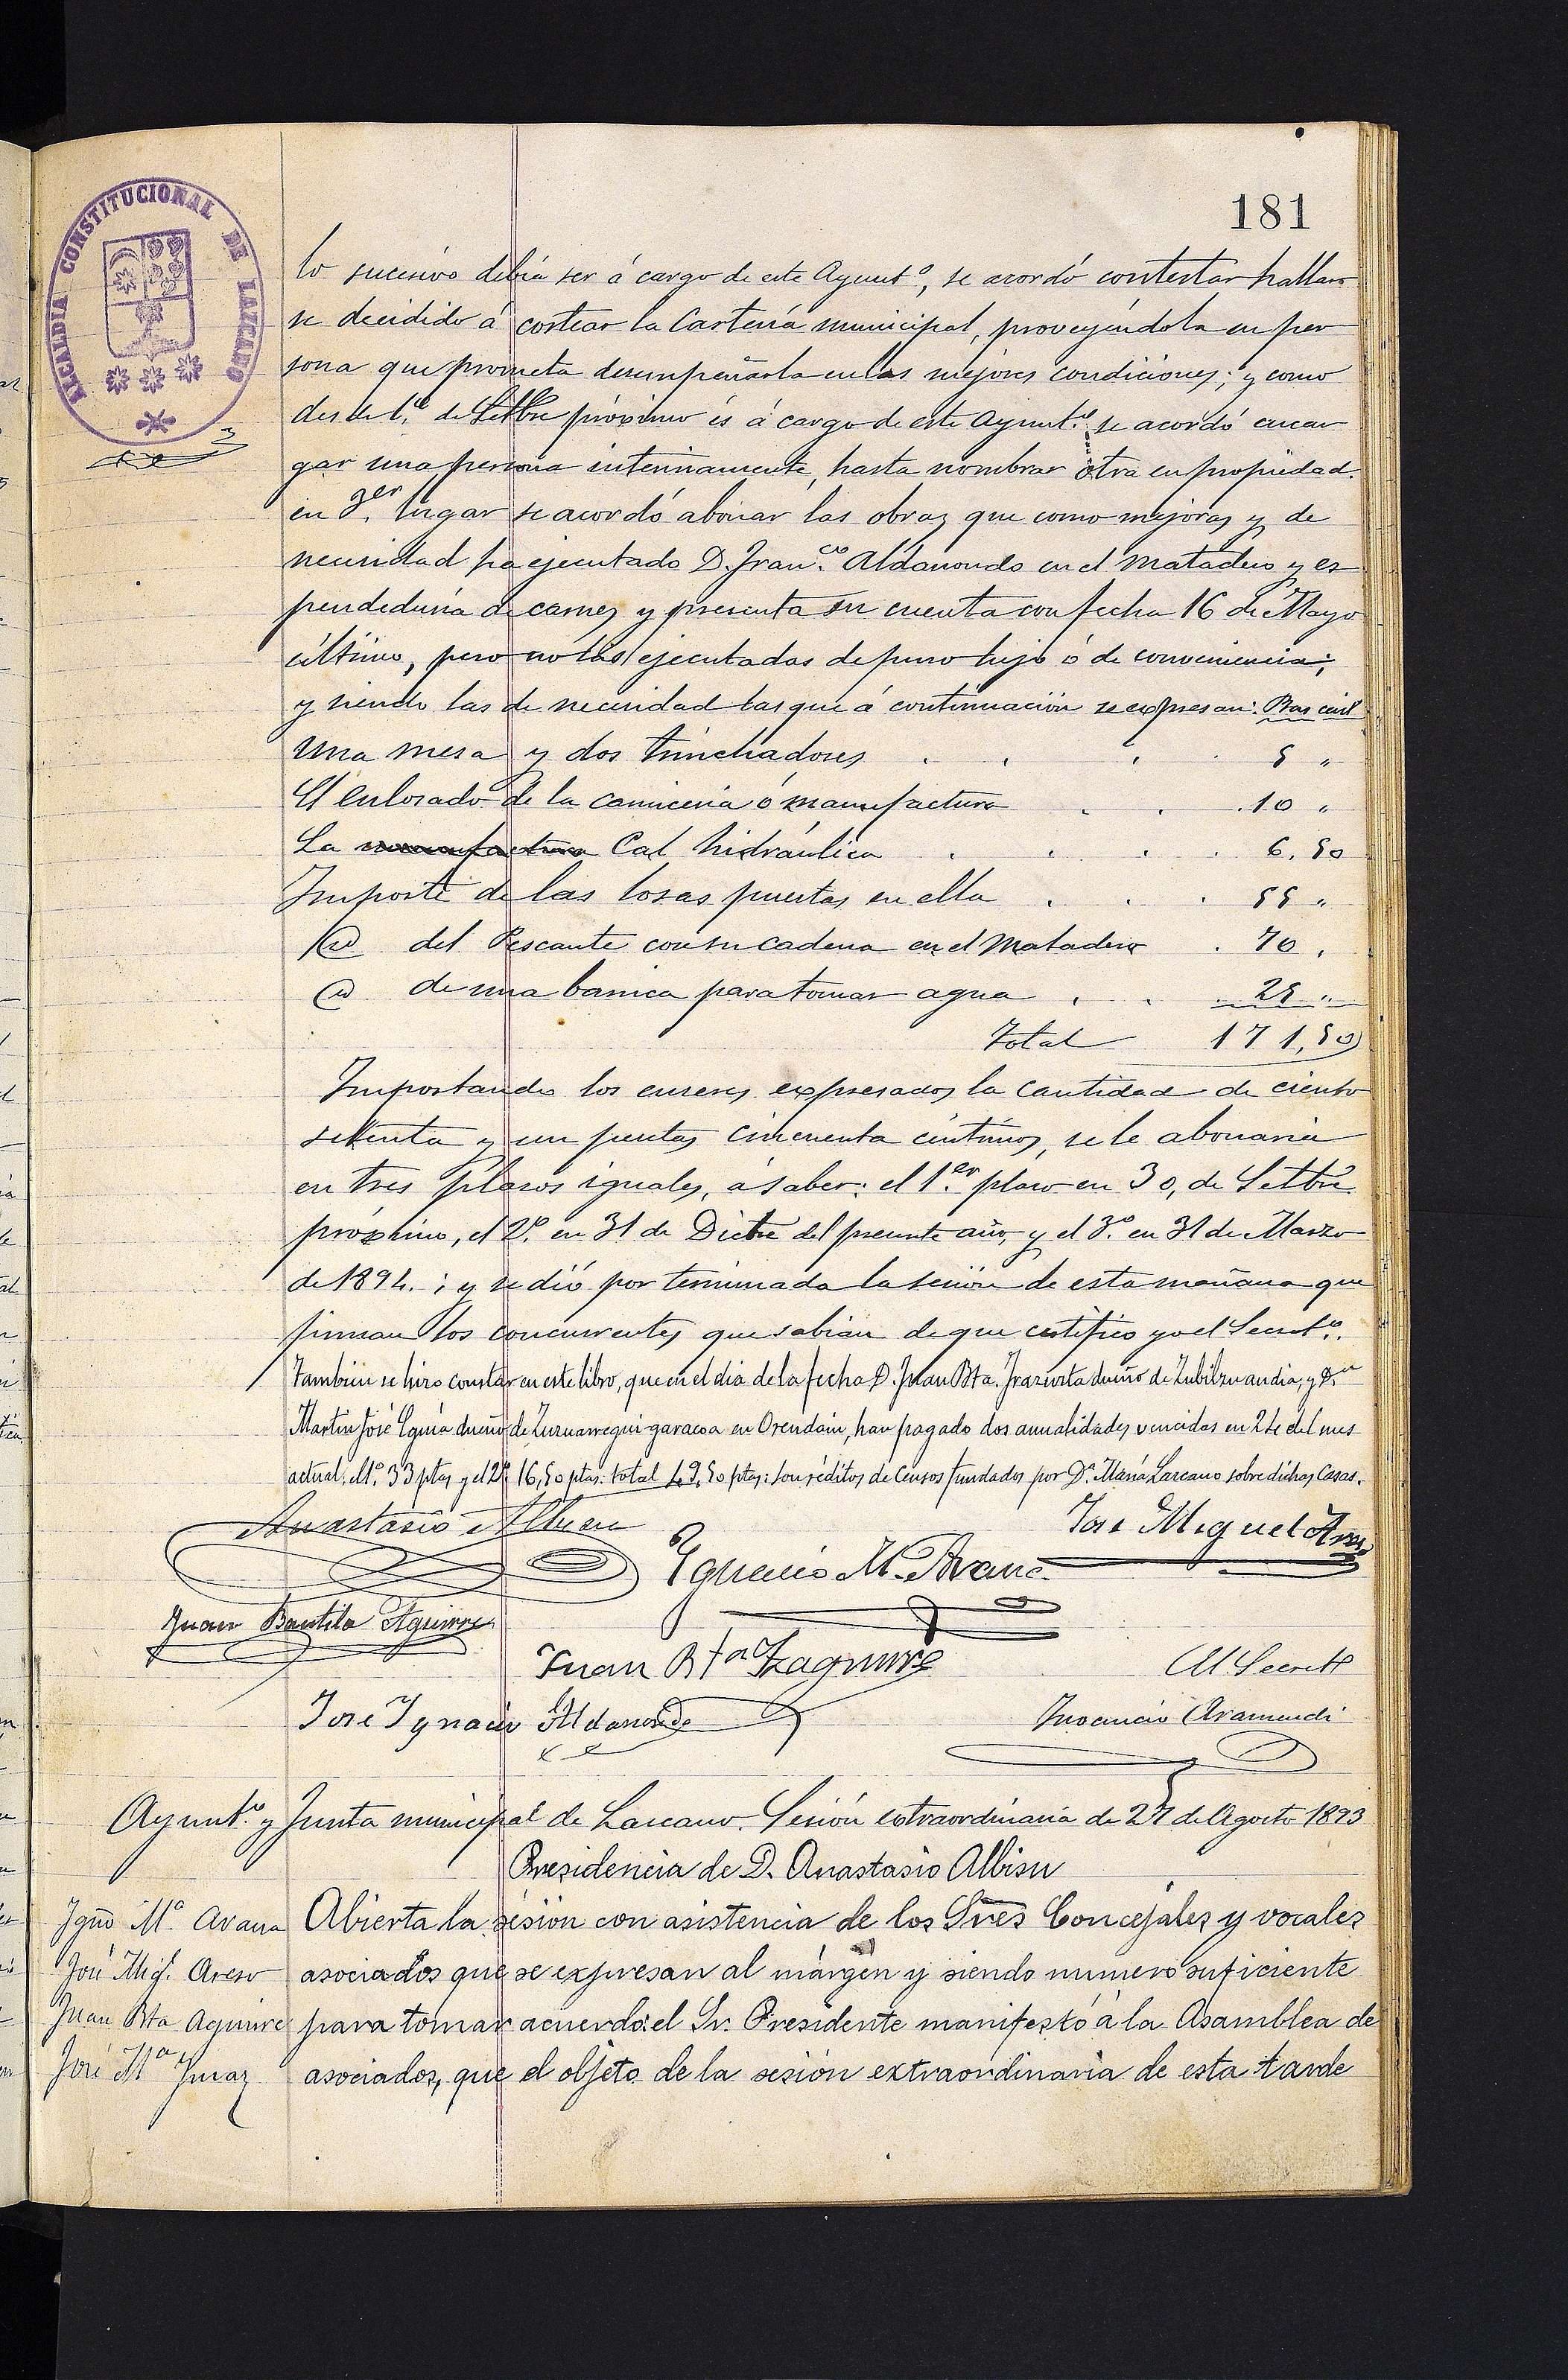 181
ALCALDIA CONSTITUCIONAL DE LAZCANO
lo sucesivo debía ser á cargo de este Ayunt.º, se acordó contestar hallar
se decidido á costear la Cartería municipal, proveyéndola en per
sona que prometa desempeñarla en las mejores condiciones; y como
desde 1.º de Setbre próximo es á cargo de este Ayunt.º se acordó encar
gar una persona interinamente, hasta nombrar otra en propiedad.
en 3.er lugar se acordó abonar las obras que como mejoras y de
necesidad ha ejecutado D. Fran.co Aldanondo en el Matadero y ex
pendeduría de carnes y presenta su cuenta con fecha 16 de Mayo
último, pero no las ejecutadas de puro lujo ó de conveniencia;
y siendo las de necesidad las que á continuación se expresan:
Una mesa y dos trinchadores 5 "
El enlosado de la carnicería ó manufactura 10 "
La manufactura Cal hidráulica 6,50
Importe de las losas puestas en ella 55 "
Id del Pescante con su cadena en el Matadero 70 "
Id de una barrica para tomar agua 25 "
Total 171,50
Importando los enseres expresados la cantidad de ciento
setenta y un pesetas cincuenta céntimos, se le abonaría
en tres plazos iguales, á saber: el 1.er plazo en 30, de Setbre
próximo, el 2.º en 31 de Dicbre del presente año, y el 3.º en 31 de Marzo
de 1894.; y se dió por terminada la sesión de esta mañana que
firman los concurrentes que sabian de que certifico yo el Secret.º.
Tambien se hizo constar en este libro, que en el dia de la fecha D. Juan Bta. Irazusta dueño de Zubilzuandia, y D.n
Martin José Eguía dueño de Zuruarregui-garacoa en Orendain, han pagado dos anualidades vencidas en 24 del mes
actual: el 1.º 33 ptas y el 2.º 16,50 ptas. total 49,50 ptas: son réditos de Censos fundados por D.ª María Lazcano sobre dichas Casas.
Anastasio Albisu
José Miguel
Ignacio M. Arana
Juan Bautista Aguirre
Juan Bta Izaguirre
El Secret.º
José Ignacio Aldanondo
Inocencio Aramendi
Ayunt.º y Junta municipal de Lazcano. Sesión extraordinaria de 27 de Agosto 1893
Presidencia de D. Anastasio Albisu
Igno M.ª Arana
José Mig.l Areso
Juan Bta Aguirre
José M.ª Imaz
Abierta la sésión con asistencia de los Sres Concejales y vocales
asociados que se expresan al márgen y siendo numero suficiente
para tomar acuerdo: el Sr. Presidente manifestó á la Asamblea de
asociados, que el objeto de la sesión extraordinaria de esta tarde